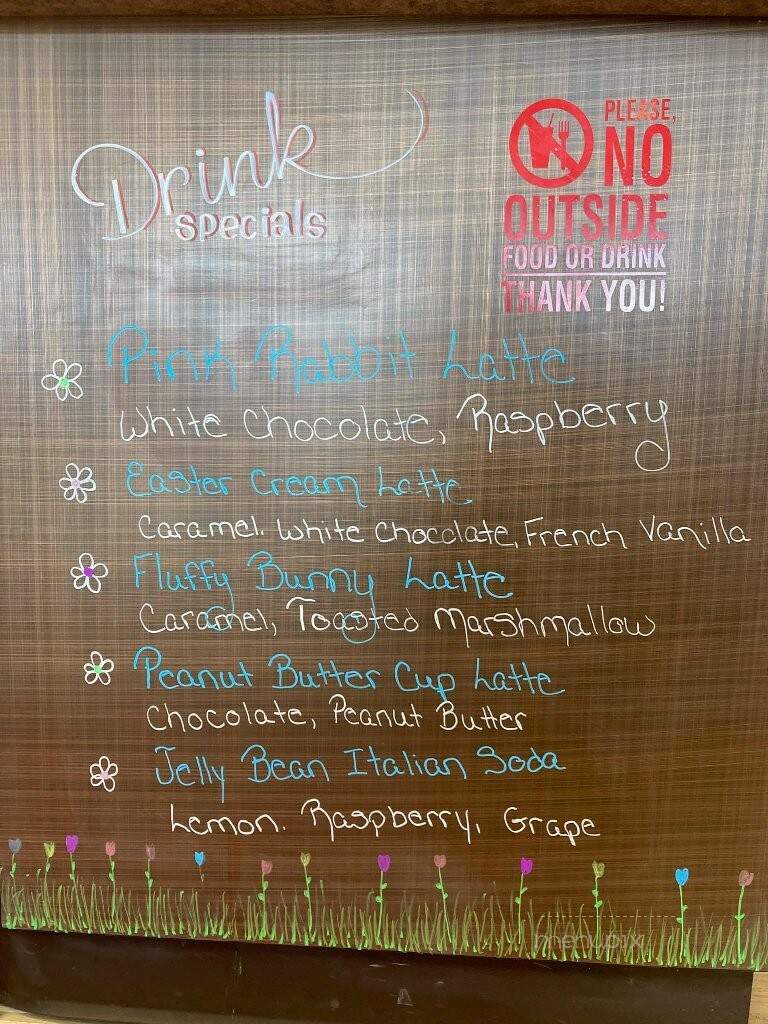 Drink
specials
PLEASE,
NO
OUTSIDE
FOOD OR DRINK
THANK YOU!
Pink Rabbit Latte
White Chocolate, Raspberry
Easter Cream Latte
Caramel. White Chocolate, French Vanilla
Fluffy Bunny Latte
Caramel, Toasted Marshmallow
Peanut Butter Cup Latte
Chocolate, Peanut Butter
Jelly Bean Italian Soda
Lemon. Raspberry, Grape
menupix